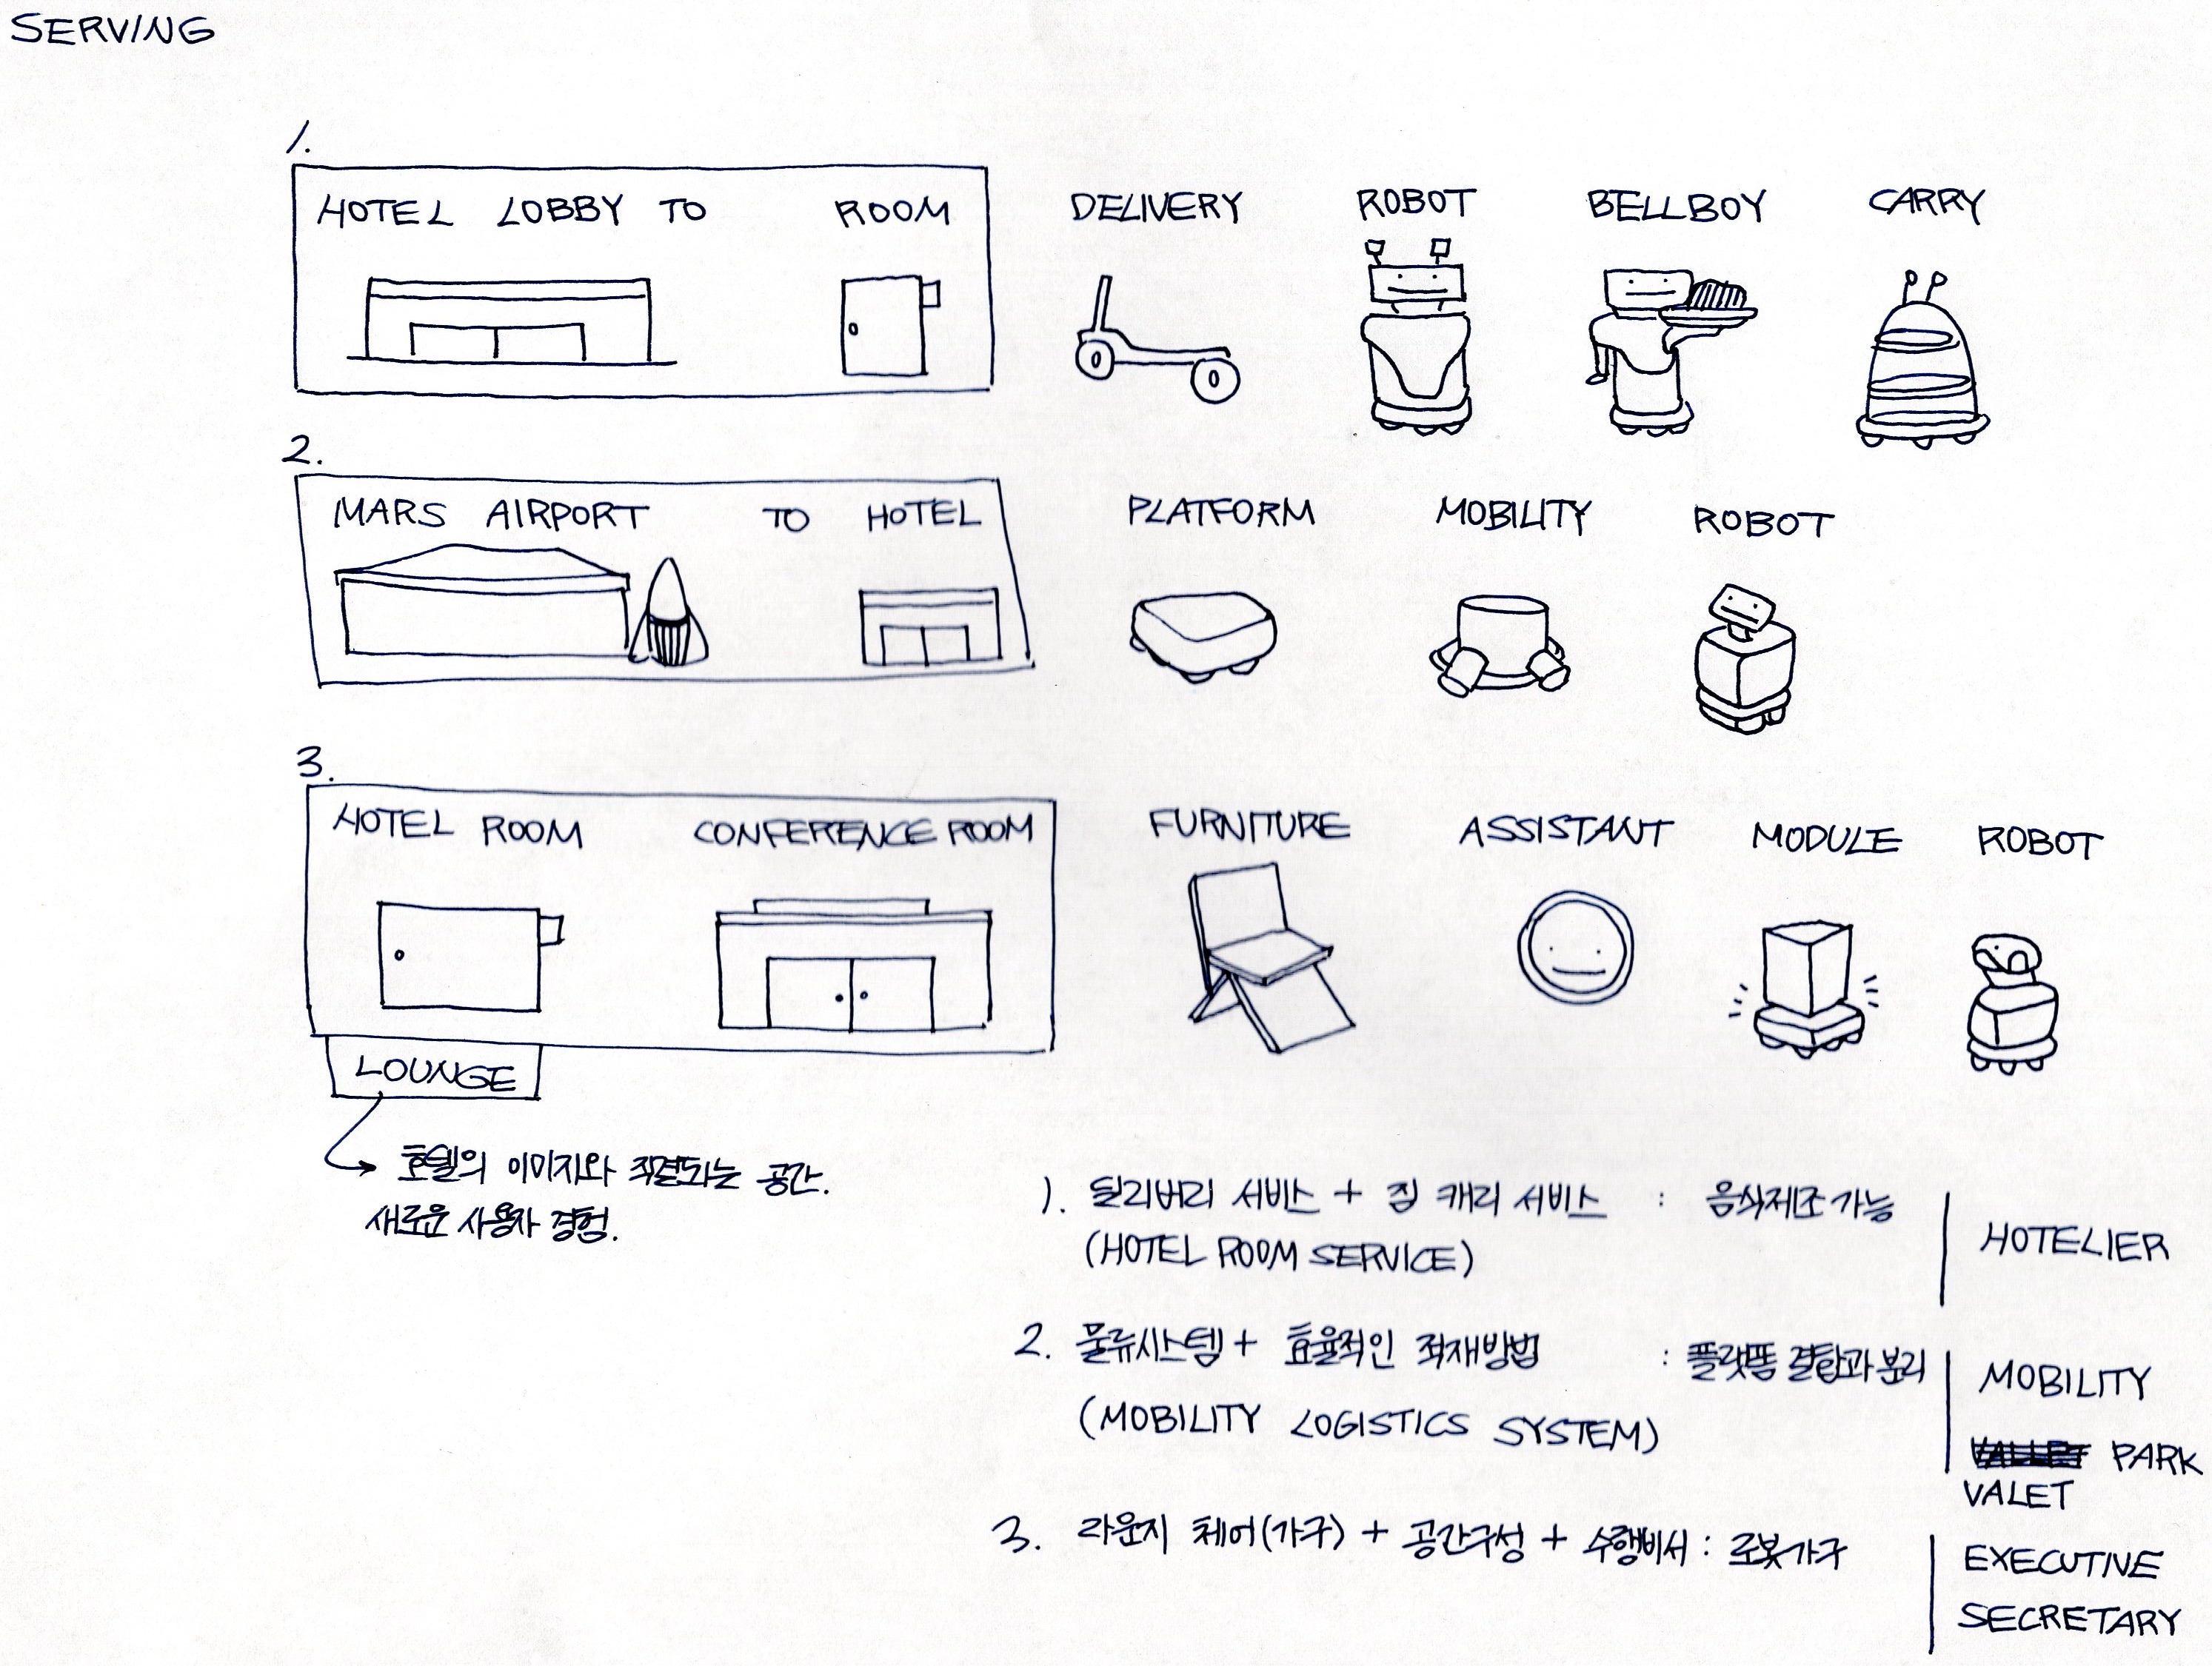 SERVING
1.
HOTEL LOBBY TO ROOM
DELIVERY ROBOT BELLBOY CARRY
2.
MARS AIRPORT TO HOTEL
PLATFORM MOBILITY ROBOT
3.
HOTEL ROOM CONFERENCE ROOM
FURNITURE ASSISTANT MODULE ROBOT
LOUNGE
호텔의 이미지와 직결되는 공간.
새로운 사용자 경험.
1. 딜리버리 서비스 + 짐 캐리 서비스 : 음식제조 가능
(HOTEL ROOM SERVICE)
HOTELIER
2. 물류시스템 + 효율적인 적재방법 : 플랫폼 결합과 분리
(MOBILITY LOGISTICS SYSTEM)
MOBILITY
PARK
VALET
3. 라운지 체어(가구) + 공간구성 + 수행비서 : 로봇가구
EXECUTIVE
SECRETARY